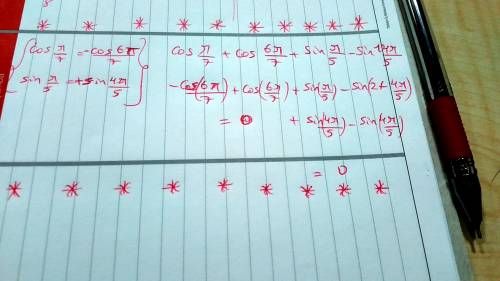 * * * * * * * * *
cos π/7 = -cos 6π/7
sin π/5 = +sin 4π/5
cos π/7 + cos 6π/7 + sin π/5 - sin 14π/5
-cos(6π/7) + cos(6π/7) + sin(π/5) - sin(2π + 4π/5)
= 0 + sin(4π/5) - sin(4π/5)
= 0
* * * * * * * * *